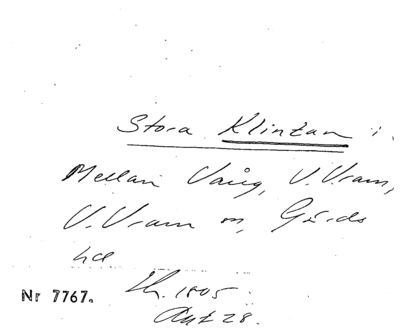 Stora Klintan i
Mellan Vång, V. Vram,
V. Vram o, Gärds
hd
1805
Akt 28.
Nr 7767.